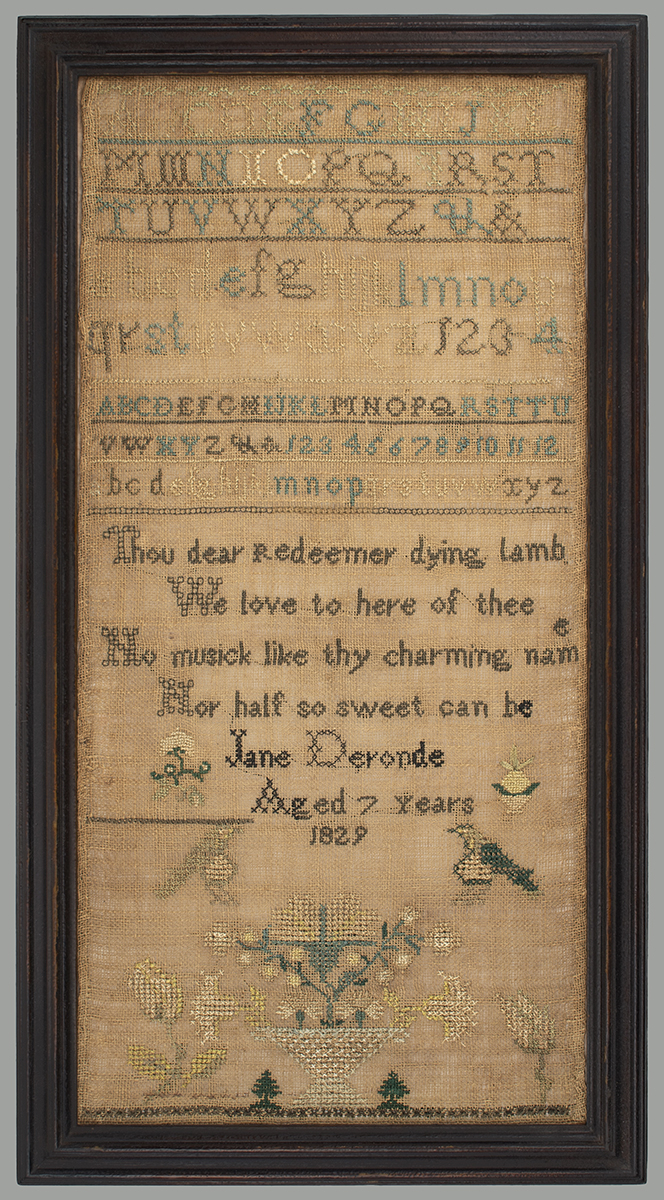 C D E F G J
M M N I O P Q R S T
T U V W X Y Z & &
a b c d e f g h l m n o p
q r s t u v w x y z 1 2 3 4
A B C D E F G H I J K L M N O P Q R S T T U
V W X Y Z & & 1 2 3 4 5 6 7 8 9 10 11 12
b c d m n o p q r s t u v w x y z
Thou dear Redeemer dying lamb
We love to here of thee
No musick like thy charming name
Nor half so sweet can be
Jane Deronde
Aged 7 Years
1829